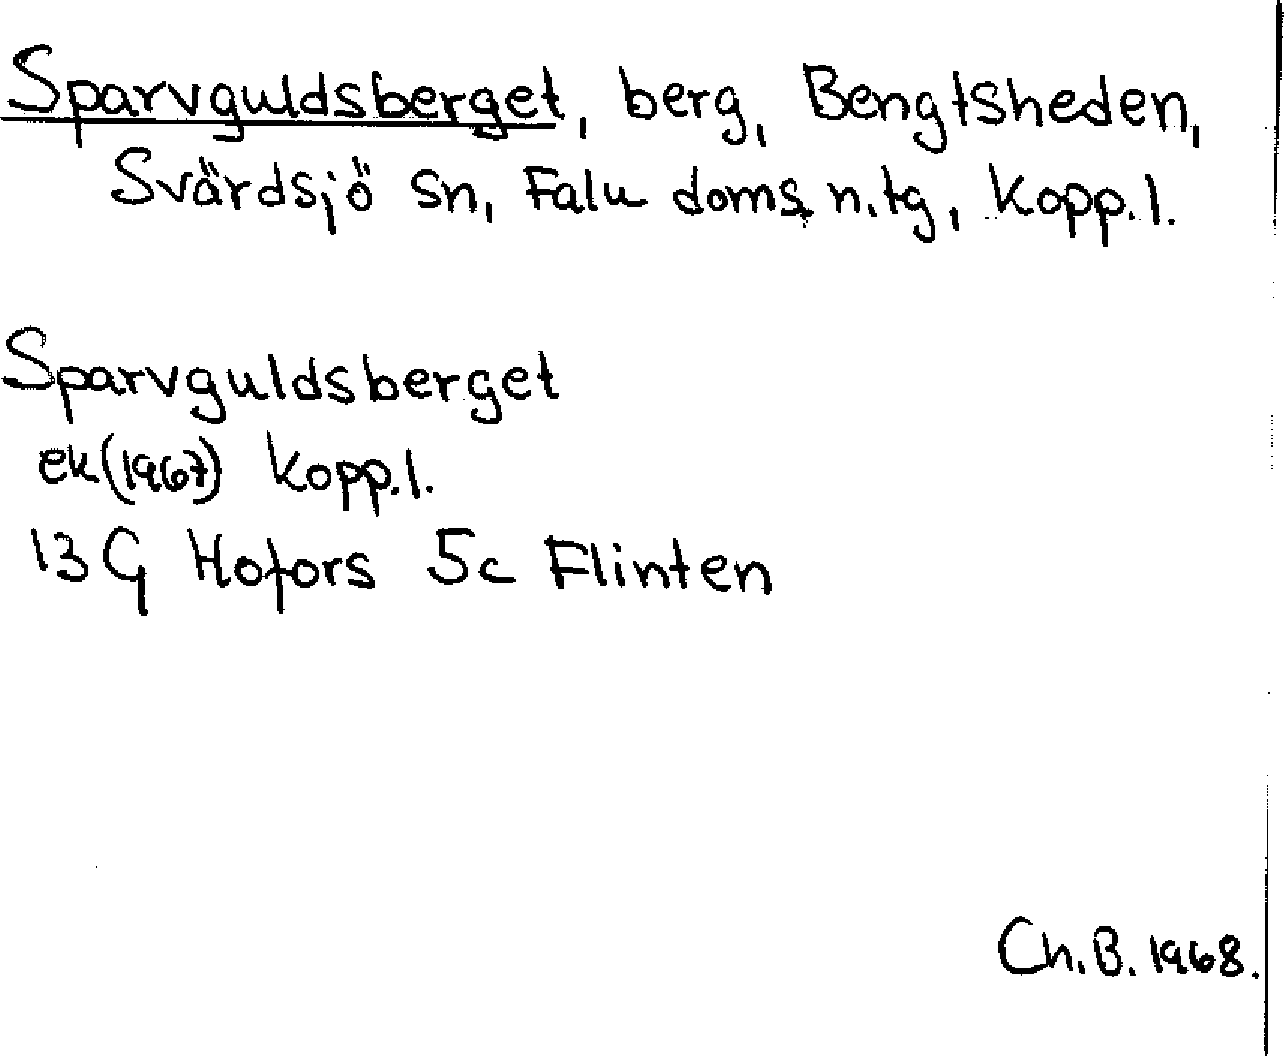 Sparvguldsberget, berg, Bengtsheden,
Svärdsjö sn, Falu doms. n. tg, Kopp. l.
Sparvguldsberget
ek (1967) Kopp. l.
13G Hofors 5c Flinten
Ch. B. 1968.